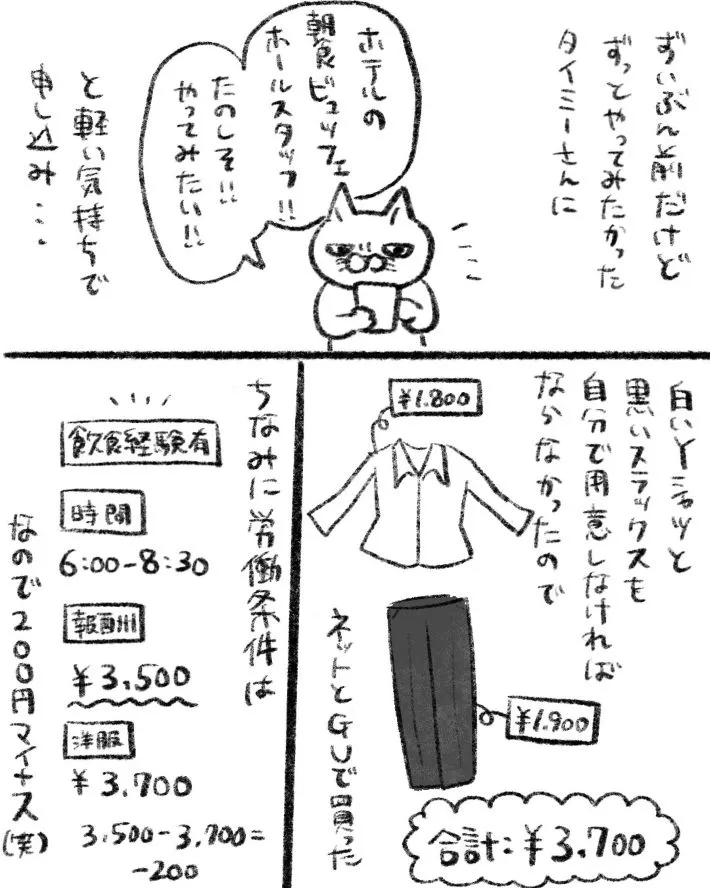 ずいぶん前だけど
ずっとやってみたかった
タイミーさんに
ホテルの
朝食ビュッフェ
ホールスタッフ!!
たのしそ!!
やってみたい!!
と軽い気持ちで
申し込み…
白いYシャツと
黒いスラックスを
自分で用意しなければ
ならなかったので
¥1.800
¥1.900
ネットとGUで買った
合計:¥3.700
ちなみに労働条件は
飲食経験有
時間
6:00-8:30
報酬
¥3,500
洋服
¥3.700
3.500-3.700=
-200
なので200円マイナス(笑)